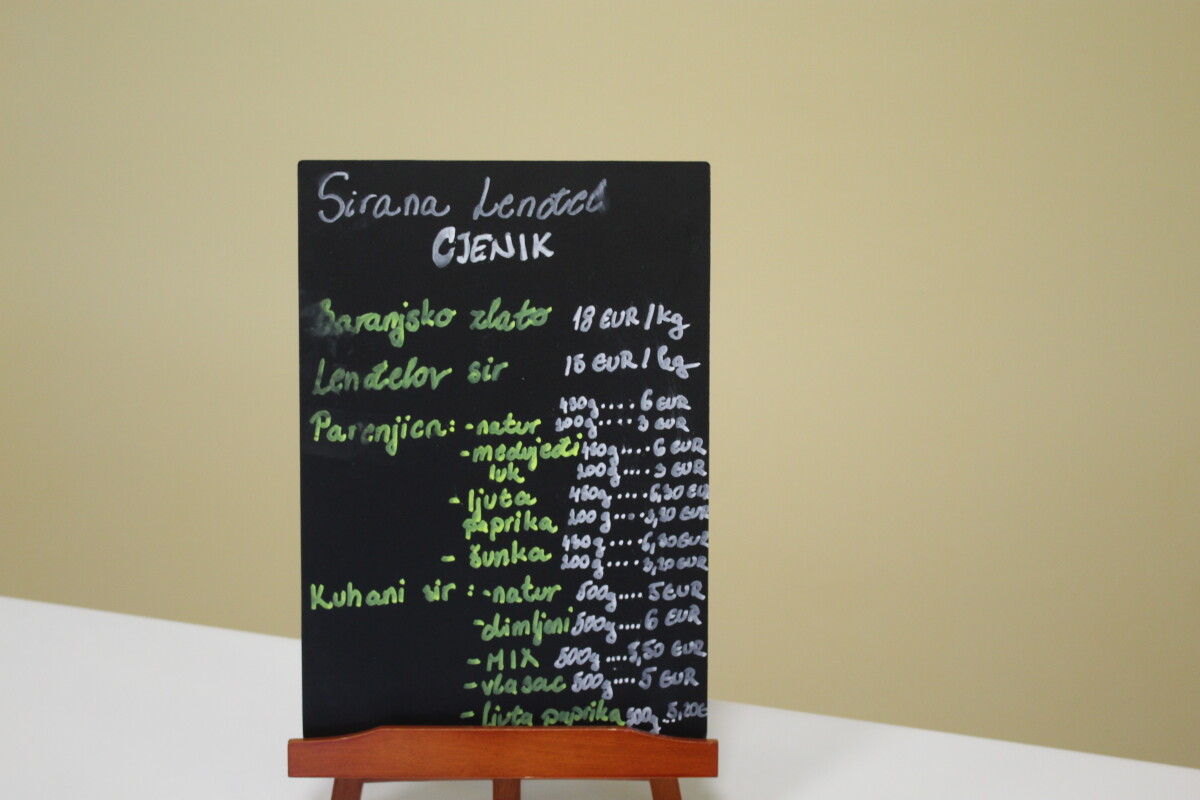 Sirana Lenđel
CJENIK
Baranjsko zlato 18 EUR/kg
Lenđelov sir 15 EUR/kg
Parenjica: -natur 450g.... 6 EUR
200g.... 3 EUR
-medvjeđi luk 450g.... 6 EUR
200g.... 3 EUR
-ljuta paprika 450g.... 6,30 EUR
200g.... 3,20 EUR
- šunka 450g.... 6,30 EUR
200g.... 3,20 EUR
Kuhani sir: -natur 500g.... 5 EUR
-dimljeni 500g.... 6 EUR
-MIX 500g.... 5,50 EUR
-vlasac 500g.... 5 EUR
-ljuta paprika 500g... 5,20E